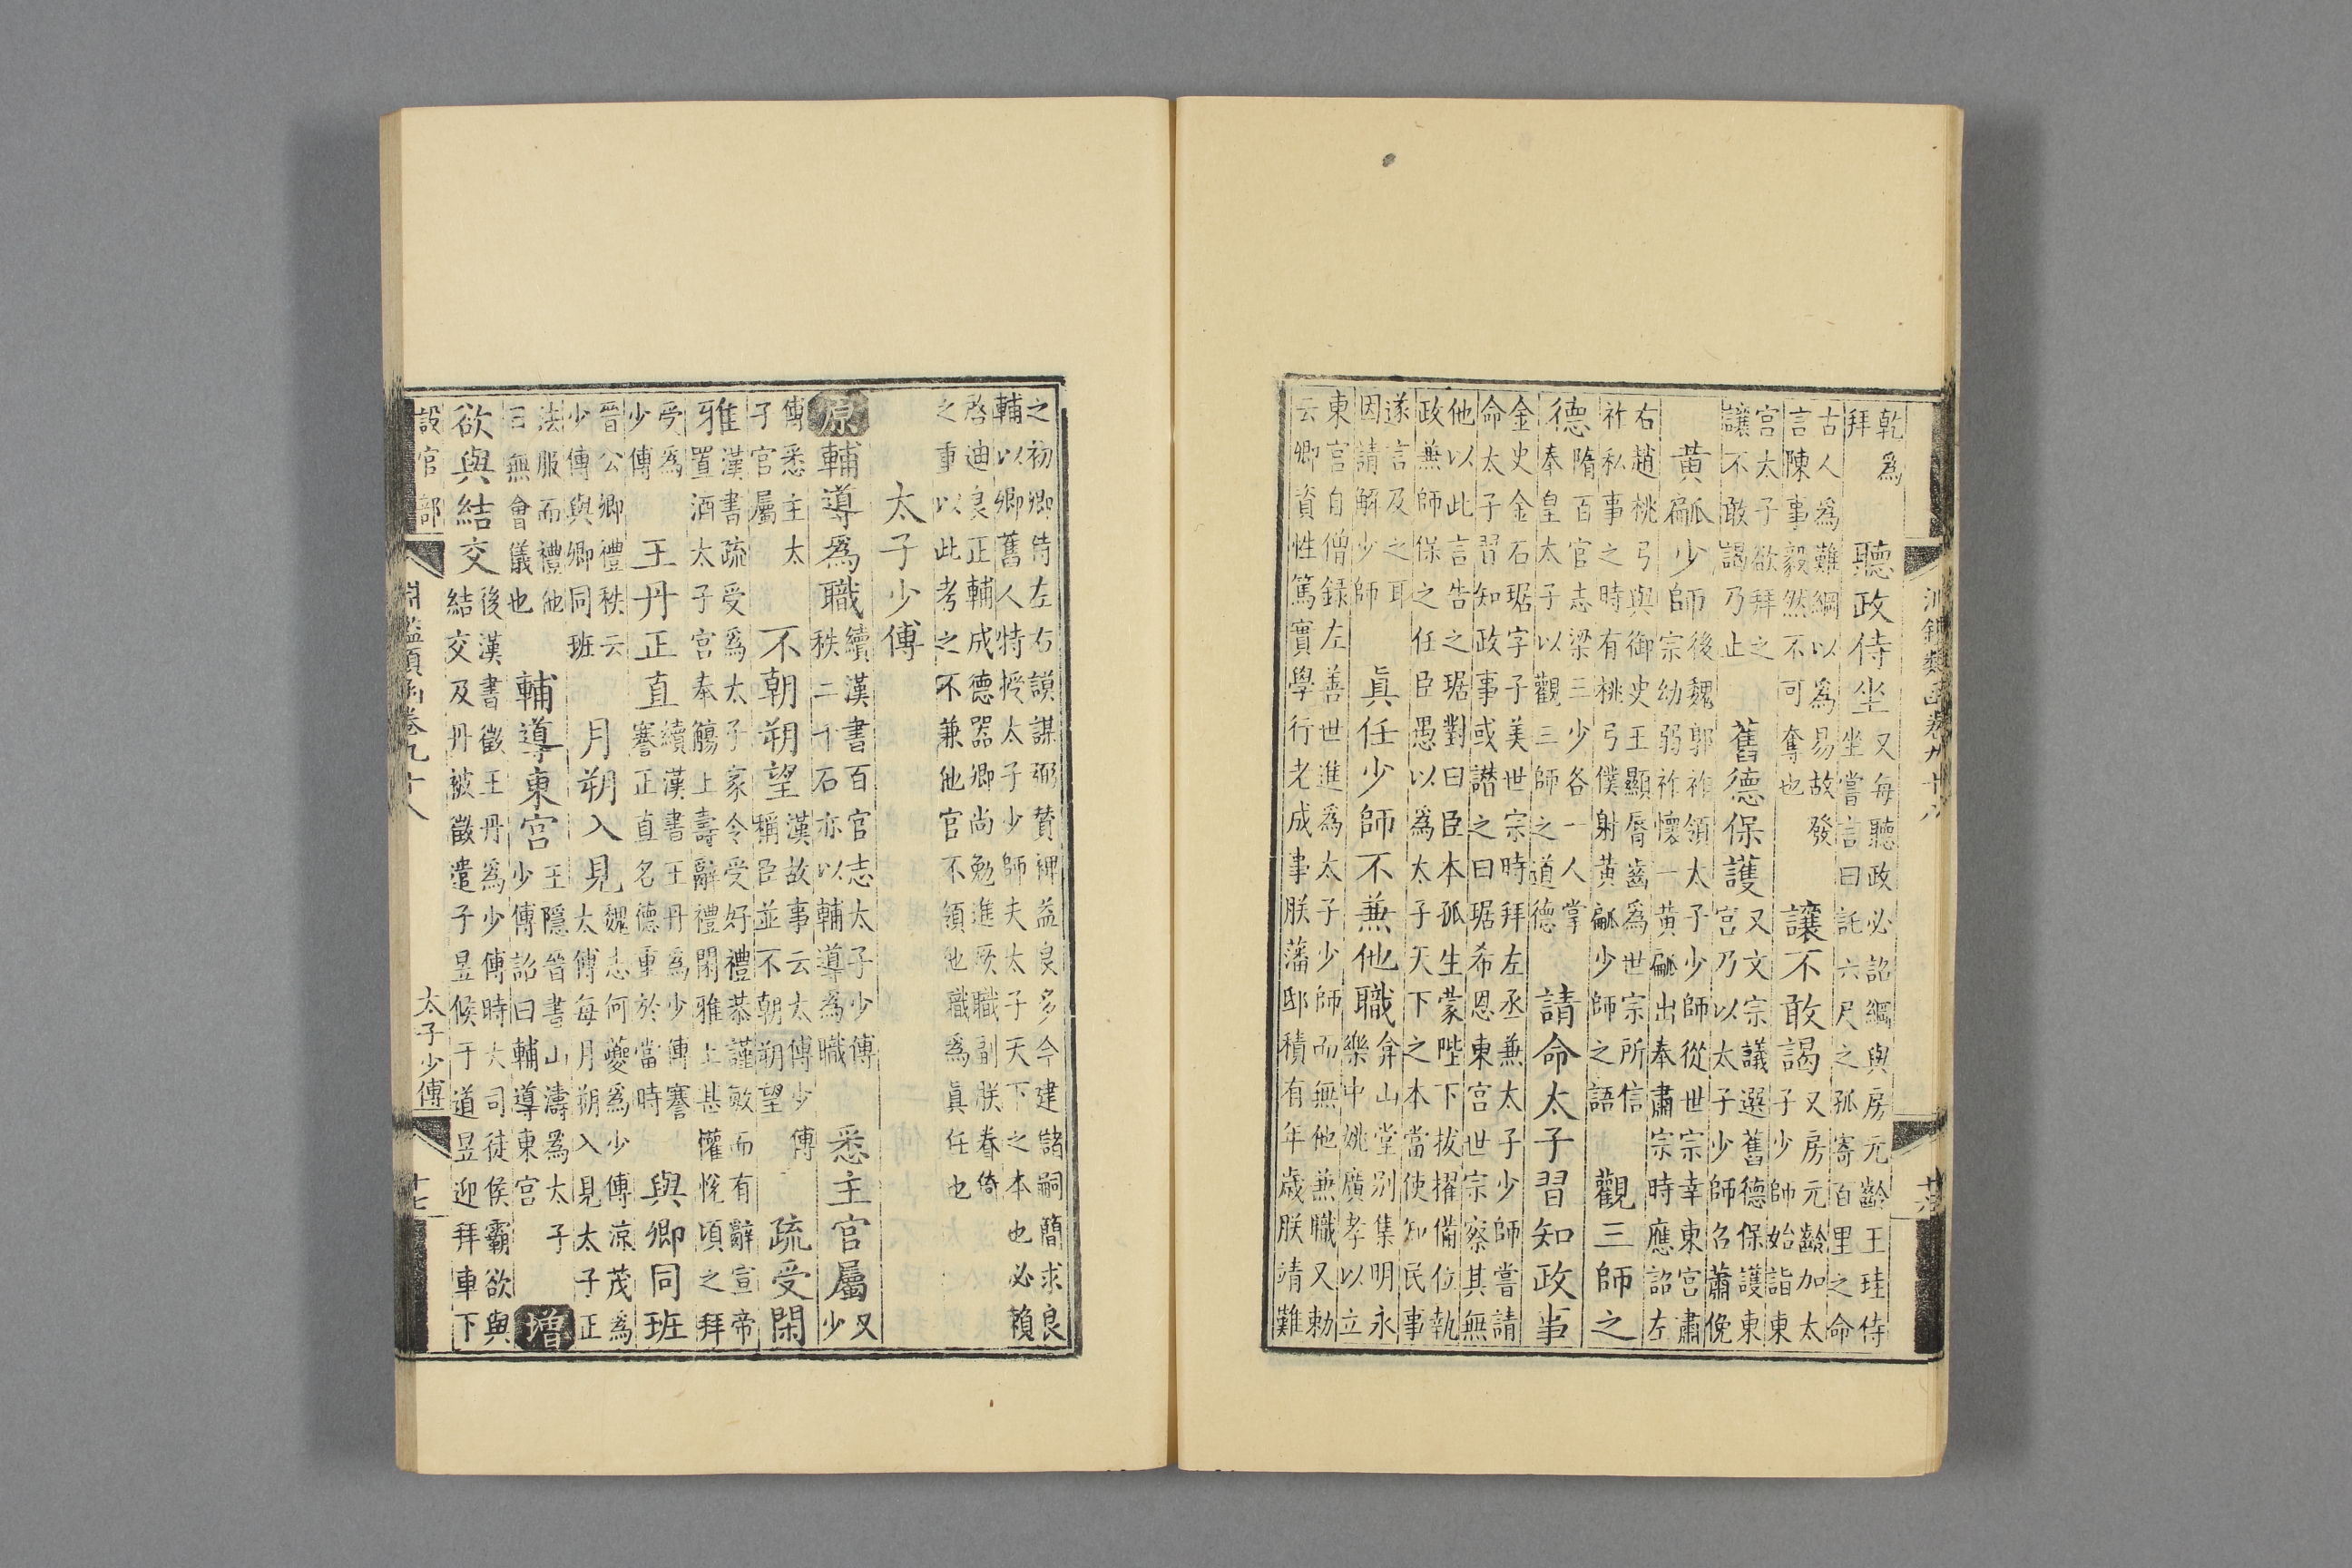 乾為拜聽政侍坐又每聽政必詔綱與房元齡王珪侍坐嘗言曰託六尺之孤寄百里之命
古人為難綱以為易故發言陳事毅然不可奪也讓不敢謁又房元齡加太子少師始詣東
宮太子欲拜之讓不敢謁乃止舊德保護又文宗議選舊德保護東宮乃以太子少師召蕭俛
黃㼐少師後魏郭祚領太子少師從世宗幸東宮肅宗幼弱祚懷一黃㼐出奉肅宗時應詔左
右趙桃弓與御史王顯脣齒為世宗所信祚私事之時有桃弓僕射黃㼐少師之語觀三師之
德隋百官志梁三少各一人掌奉皇太子以觀三師之道德請命太子習知政事
金史金石琚字子美世宗時拜左丞兼太子少師嘗請命太子習知政事或譖之曰琚希恩東宮世宗察其無
他以此言告之琚對曰臣本孤生蒙陛下拔擢備位執政無師保之任臣愚以為太子天下之本當使知民事
遂言及之耳因請解少師眞任少師不兼他職弇山堂別集明永樂中姚廣孝以立
東宮自僧録左善世進為太子少師而無他兼職又勅云卿資性篤實學行老成事朕藩邸積有年歲朕靖難
之初卿侍左右謨謀弼贊裨益良多今建儲嗣簡求良輔以卿舊人特授太子少師夫太子天下之本也必賴
啓迪良正輔成德器卿尚勉進厥職副朕眷倚之事以此考之不兼他官不領他職為眞任也
太子少傅
原輔導為職續漢書百官志太子少傅秩二千石亦以輔導為職悉主官屬又少
傅悉主太子官屬不朝朔望漢故事云太傅少傅稱臣並不朝朔望疏受閑
雅漢書疏受為太子家令受好禮恭謹敏而有辭宣帝牙置酒太子宮奉觴上壽辭禮閑雅上甚懽悅頃之拜
受為少傅王丹正直續漢書王丹為少傅謇謇正直名德重於當時與卿同班
晉公卿禮秩云少傅與卿同班月朔入見魏志何夔為少傅涼茂為太傅每月朔入見太子正
法服而禮他日無會儀也輔導東宮王隱晉書山濤為太子少傅詔曰輔導東宮增
欲與結交後漢書徵王丹為少傅時大司徒侯霸欲與結交及丹被徵遣子昱候于道昱迎拜車下
設官部 淵鑑類函卷九十八 太子少傅 十七